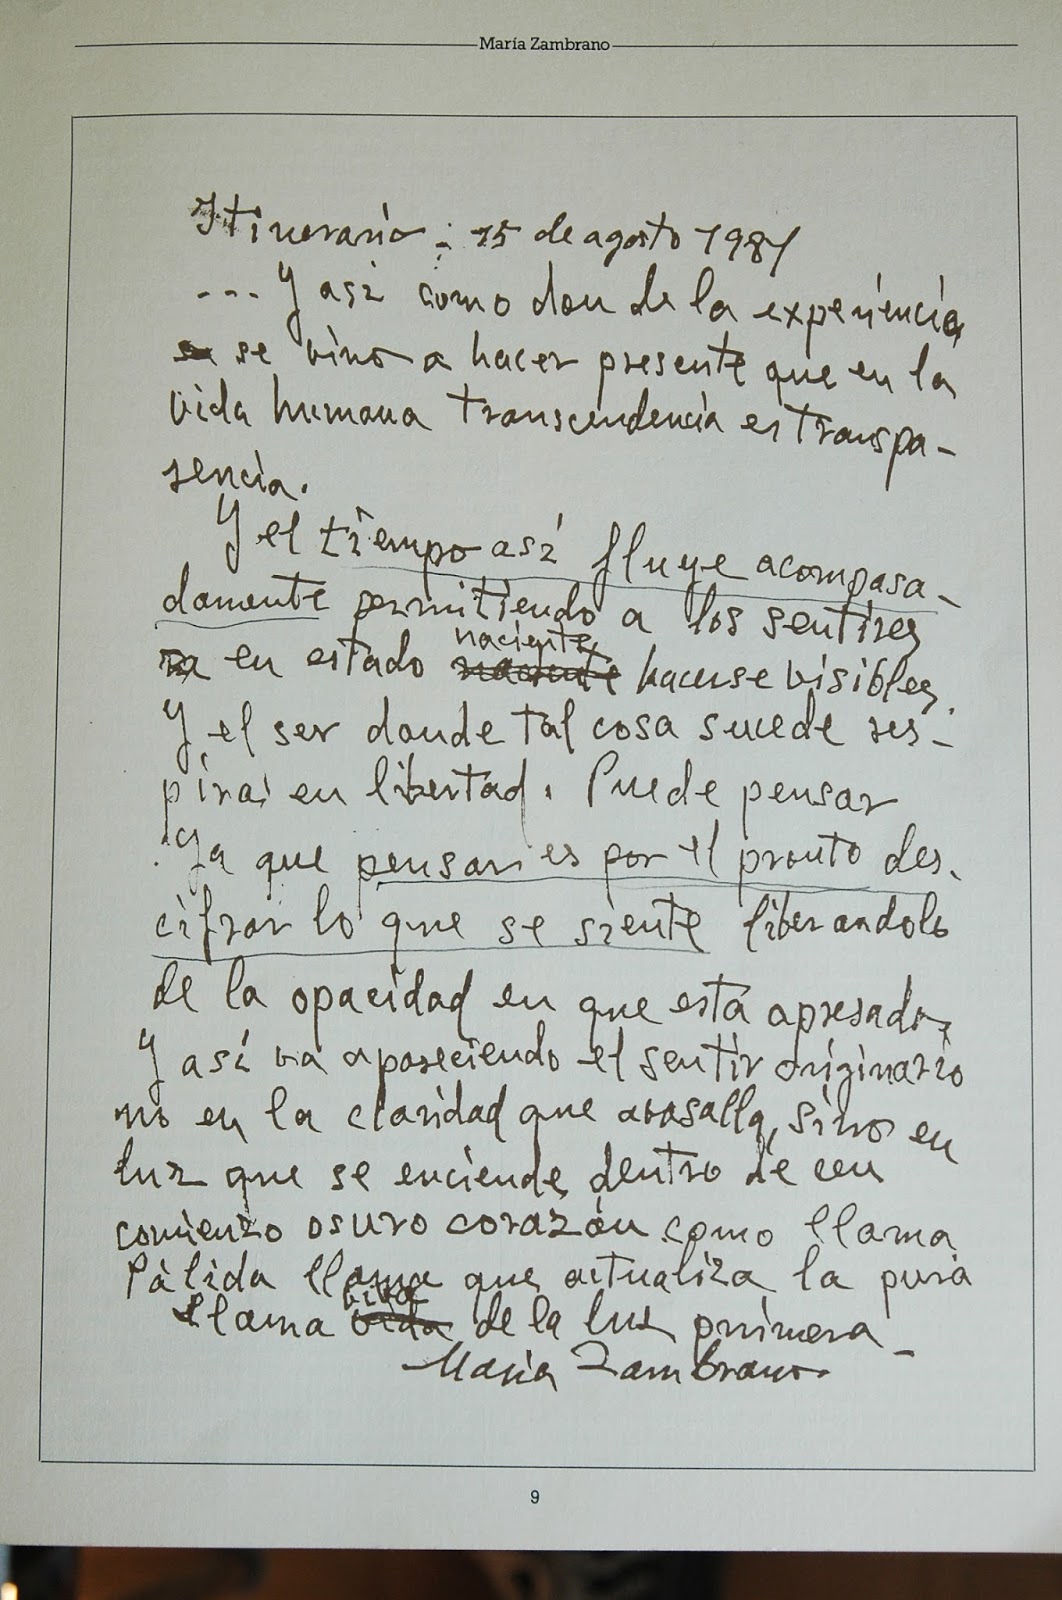 María Zambrano
Itinerario: 15 de agosto 1987
... Y así como don de la experiencia
se vino a hacer presente que en la
vida humana transcendencia es transpa-
rencia.
Y el tiempo así fluye acompasa-
damente permitiendo a los sentires
en estado naciente hacerse visibles.
Y el ser donde tal cosa sucede res-
pirar en libertad. Puede pensar
Ya que pensar es por el pronto des-
cifrar lo que se siente liberandolo
de la opacidad en que está apresado,
Y así va apareciendo el sentir originario
no en la claridad que avasalla, sino en
luz que se enciende dentro de un
comienzo oscuro corazón como llama
Pálida llama que actualiza la pura
llama viva de la luz primera-
María Zambrano
9